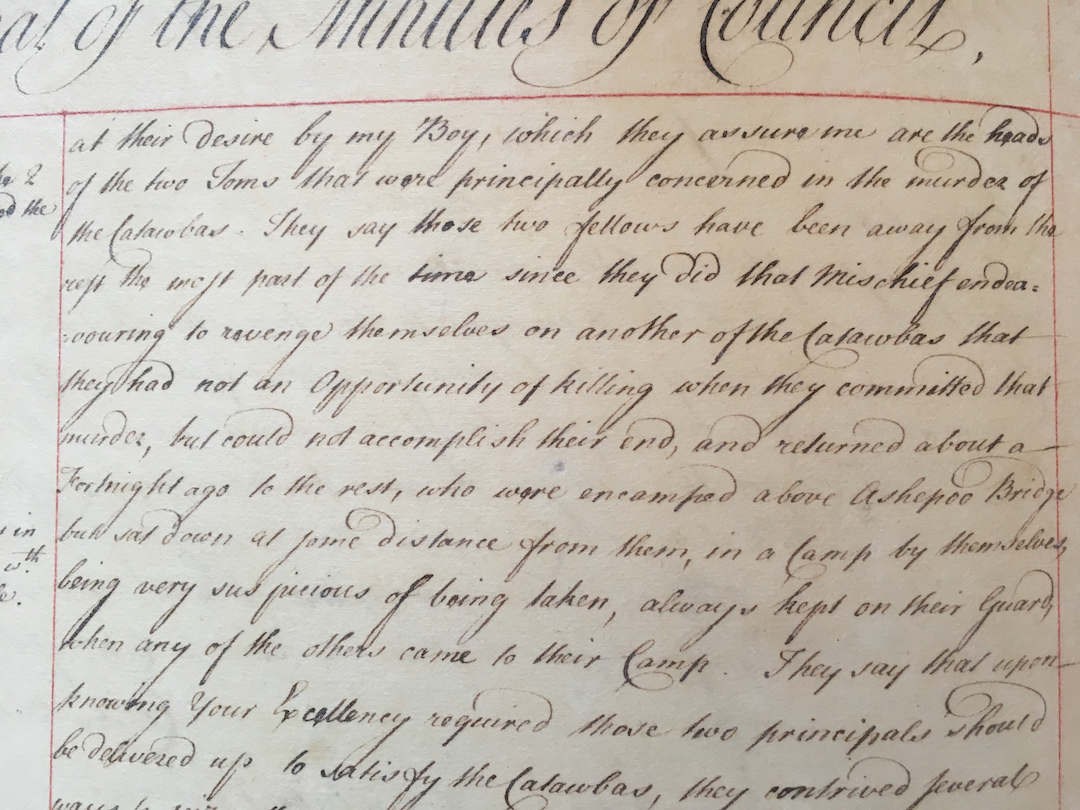 of the Minutes of Council,
at their Desire by my Boy, which they assure me are the heads
of the two Toms that were principally concerned in the murder of
the Catawbas. They say those two fellows have been away from the
rest the most part of the time since they did that Mischief endea=
=vouring to revenge themselves on another of the Catawbas that
they had not an Opportunity of killing when they committed that
murder, but could not accomplish their end, and returned about a
Fortnight ago to the rest, who were encamped above Ashepoo Bridge
but sat down at some distance from them, in a Camp by themselves,
being very suspicious of being taken, always kept on their Guard,
when any of the others came to their Camp. They say that upon
knowing Your Excellency required those two principals should
be delivered up to satisfy the Catawbas, they contrived several
2
the
in
wth